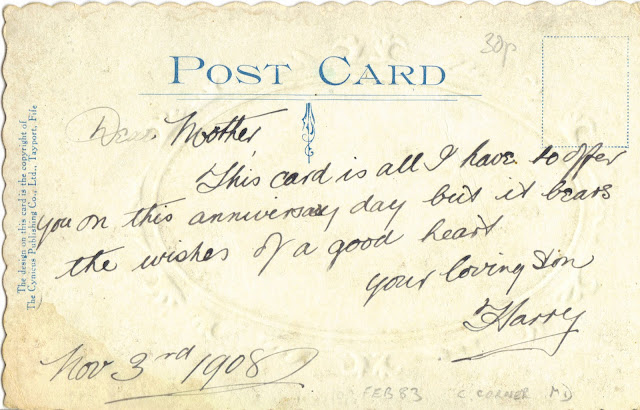 30p
POST CARD
Dear Mother,
This card is all I have to offer
you on this anniversary day but it bears
the wishes of a good heart
your loving Son
Harry
Nov 3rd 1908
FEB 83 C. CORNER MD
The design on this card is the copyright of
The Cynicus Publishing Co., Ltd., Tayport, Fife